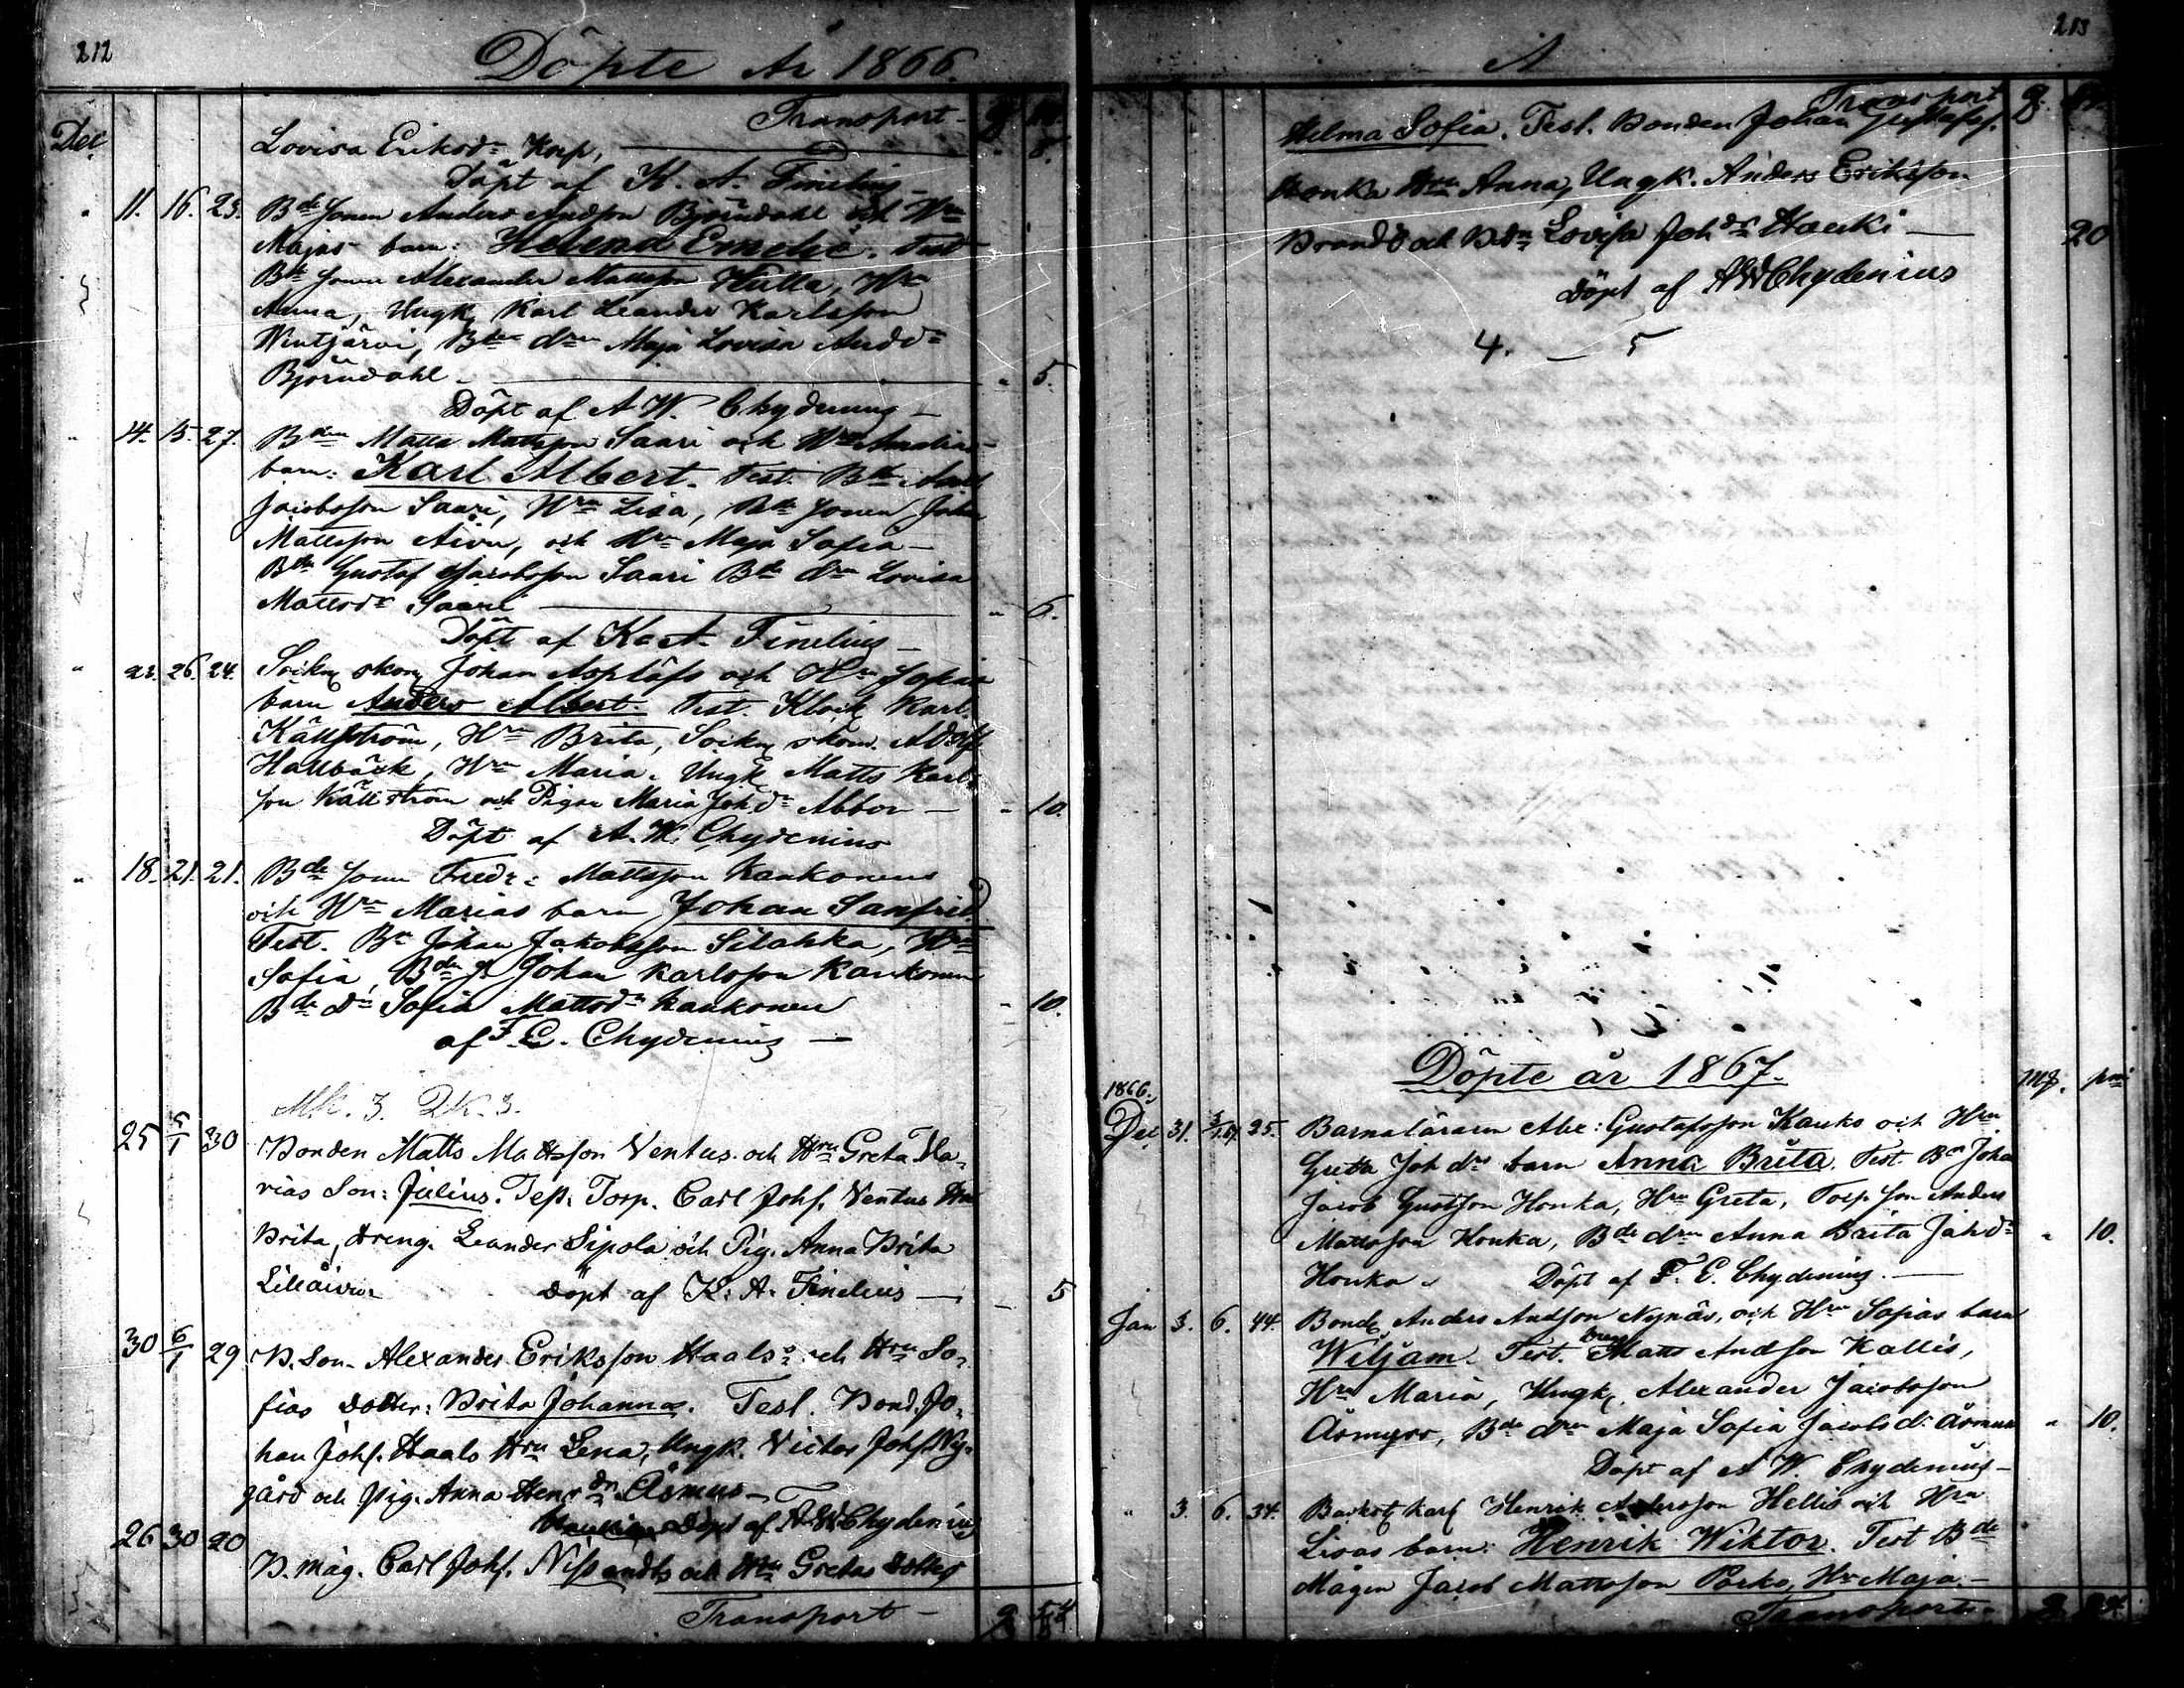 212
Döpte År 1866.
Transport-
Dec
Lovisa Eriksdr Korp, 5.
Döpt af K. A. Finelius
" 11. 16. 23. Bde sonen Anders Andsson Björndahl och Hru
Majas barn: Helena Emelie. Test
Bde sonen Alexander Mattsson Hulla, Hru
Anna, Ungk Karl Leander Karlsson
Wintjärvi, Bde drn Maja Lovisa Andsdr
Björndahl " 5.
Döpt af A W. Chydenius
" 14. 15. 27. Bden Matts Mattsson Saari och Hru Amalias
barn: Karl Albert. Test. Bde
Jacobsson Saari, Hru Lisa, Bde sonen Johan
Mattsson och Hru Maja Sofia
Bden Gustaf Jacobsson Saari Bde drn Lovisa
Mattsdr Saari " 6.
Döpt af K. A. Finelius
" 26. 24. Sockn skom Johan och Hru
barn Anders Albert. Test. Klock Karl
Källström, Hru Brita, Sockn skom. Adolf
Hallbäck, Hru Maria. Ungk Matts Karls
son Källström och Pigan Maria Johdr Abbor " 10.
Döpt af A. W. Chydenius
" 18. 21. 21. Bde sonen Fredr: Mattsson Kankonens
och Hru Marias barn, Johan Sanfrid.
Test. Bn Johan Jakobsson Silahka, Hru
Sofia, Bden Johan Karlsson Kankonen
Bde Dr Sofia Mattsdr Kankonen " 10.
af F. E. Chydenius
Mk. 3. Qk. 3.
25 5/1 30 Bonden Matts Mattsson Ventus och Hru Greta Ma-
rias Son: Julius. Test. Torp. Carl Johs. Ventus Hru
Brita, dreng. Leander Sipola och Pig. Anna Brita
Lillåivu. Döpt af K. A. Finelius 5
30 6/1 29 B. Son. Alexander Eriksson Haals och Hru So-
fias dotter: Brita Johanna. Test. Bond. Jo-
han Johs. Haals Hru Lena, Ungk. Victor Johs. Ny-
gård och pig. Anna Henrdr Åsmus
Döpt af AWChydenius
26 30 20 B. måg. Carl Johs. och Hru Gretas dotter
Transport
213
Transport
Helma Sofia. Test. Bonden Johan Gustafss.
Honka Hru Anna, Ungk. Anders Eriksson
Brandö och Bdn Lovisa Johdr Hauki 20
Döpt af AWChydenius
4. — 5
Döpte år 1867.
1866.
Dec 31. 25. Barnaläraren Alex: Gustafsson Kauko och Hru
Greta Joh drs barn Anna Brita. Test. Bn Johan
Jacob Gustsson Honka, Hru Greta, Torp son Anders
Mattsson Honka, Bde drn Anna Brita Johdr " 10.
Honka. Döpt af F. E. Chydenius.
Jan 3. 6. 44. Bond Anders Andsson Nynäs, och Hru Sofias barn
Wiljam. Test. Matts Andsson Kallis,
Hru Maria, Ungk. Alexander Jacobsson
Åsmyrs, Bde drn Maja Sofia Jacobsdr Åsmus " 10.
Döpt af A W. Chydenius
" 3. 6. 34. Backst karl Henrik Andersson Hellis och Hru
Lisas barn: Henrik Wiktor. Test Bde
Mågen Jacob Mattsson Porko, Hru Maja.
Transport